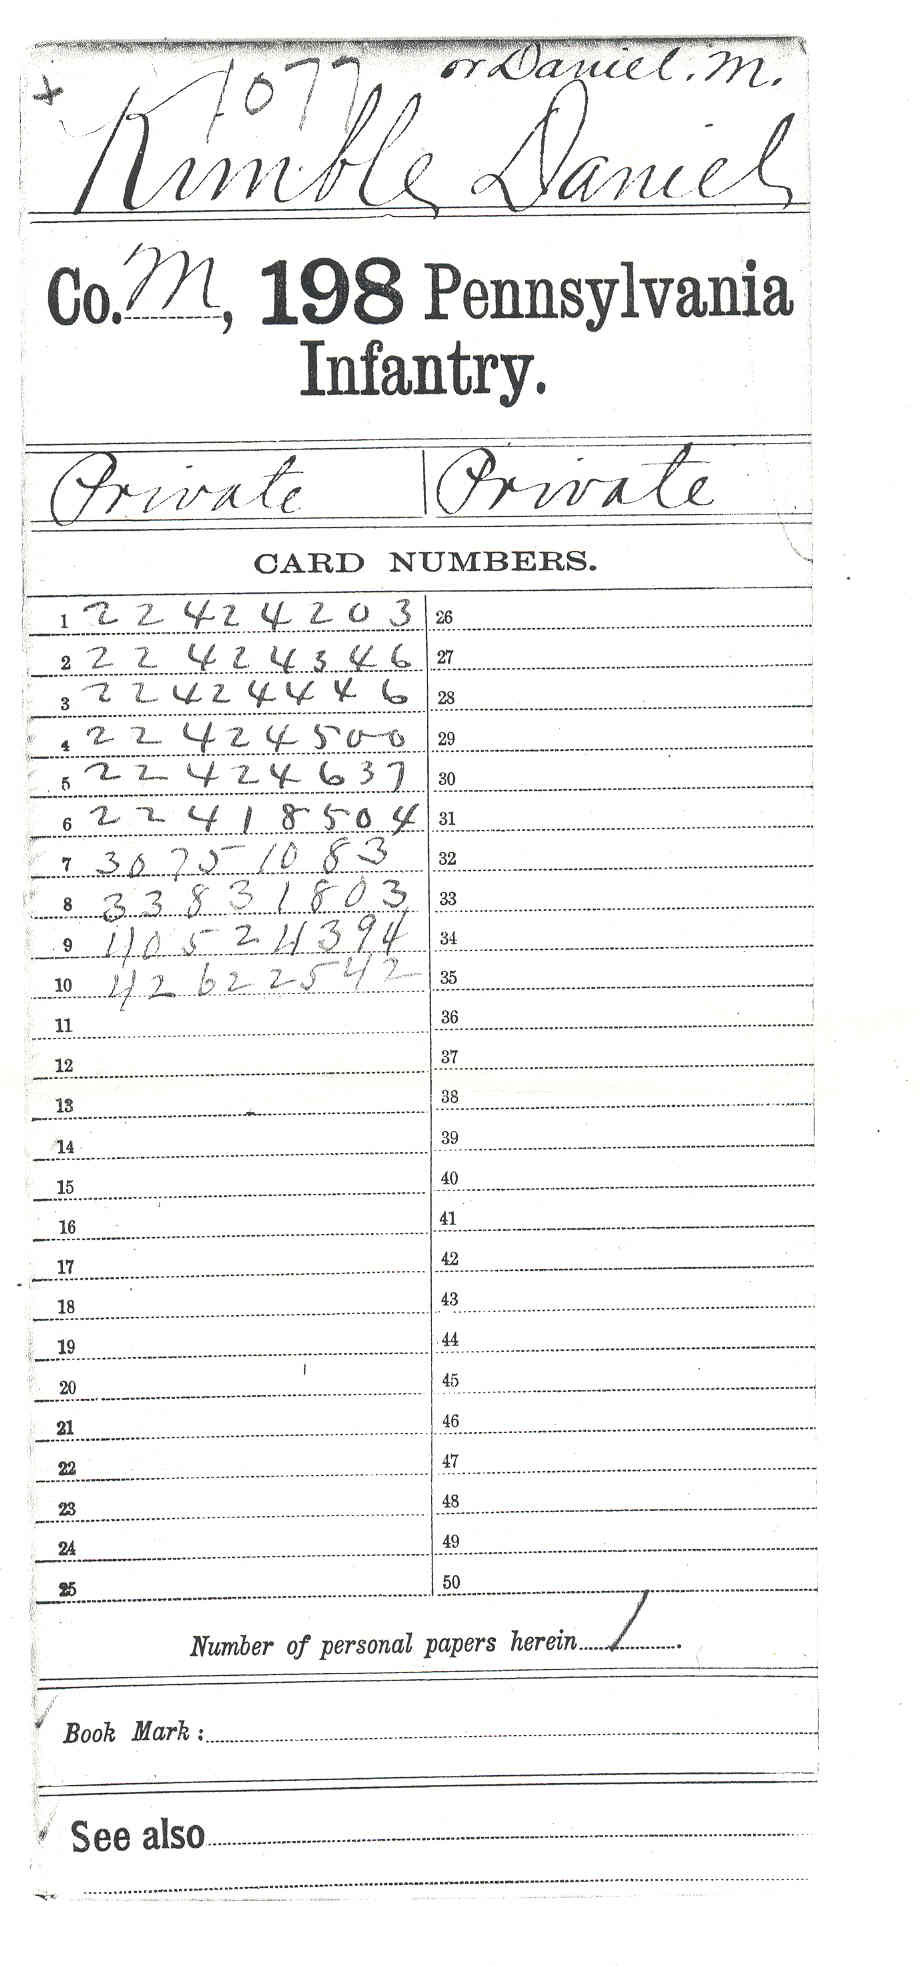 or Daniel. M.
1077
Kimble Daniel
Co. M, 198 Pennsylvania
Infantry.
Private Private
CARD NUMBERS.
1 22424203 26
2 22424346 27
3 22424446 28
4 22424500 29
5 22424637 30
6 22418504 31
7 30751083 32
8 33831803 33
9 40524394 34
10 42622542 35
11 36
12 37
13 38
14 39
15 40
16 41
17 42
18 43
19 44
20 45
21 46
22 47
23 48
24 49
25 50
Number of personal papers herein 1.
Book Mark:
See also